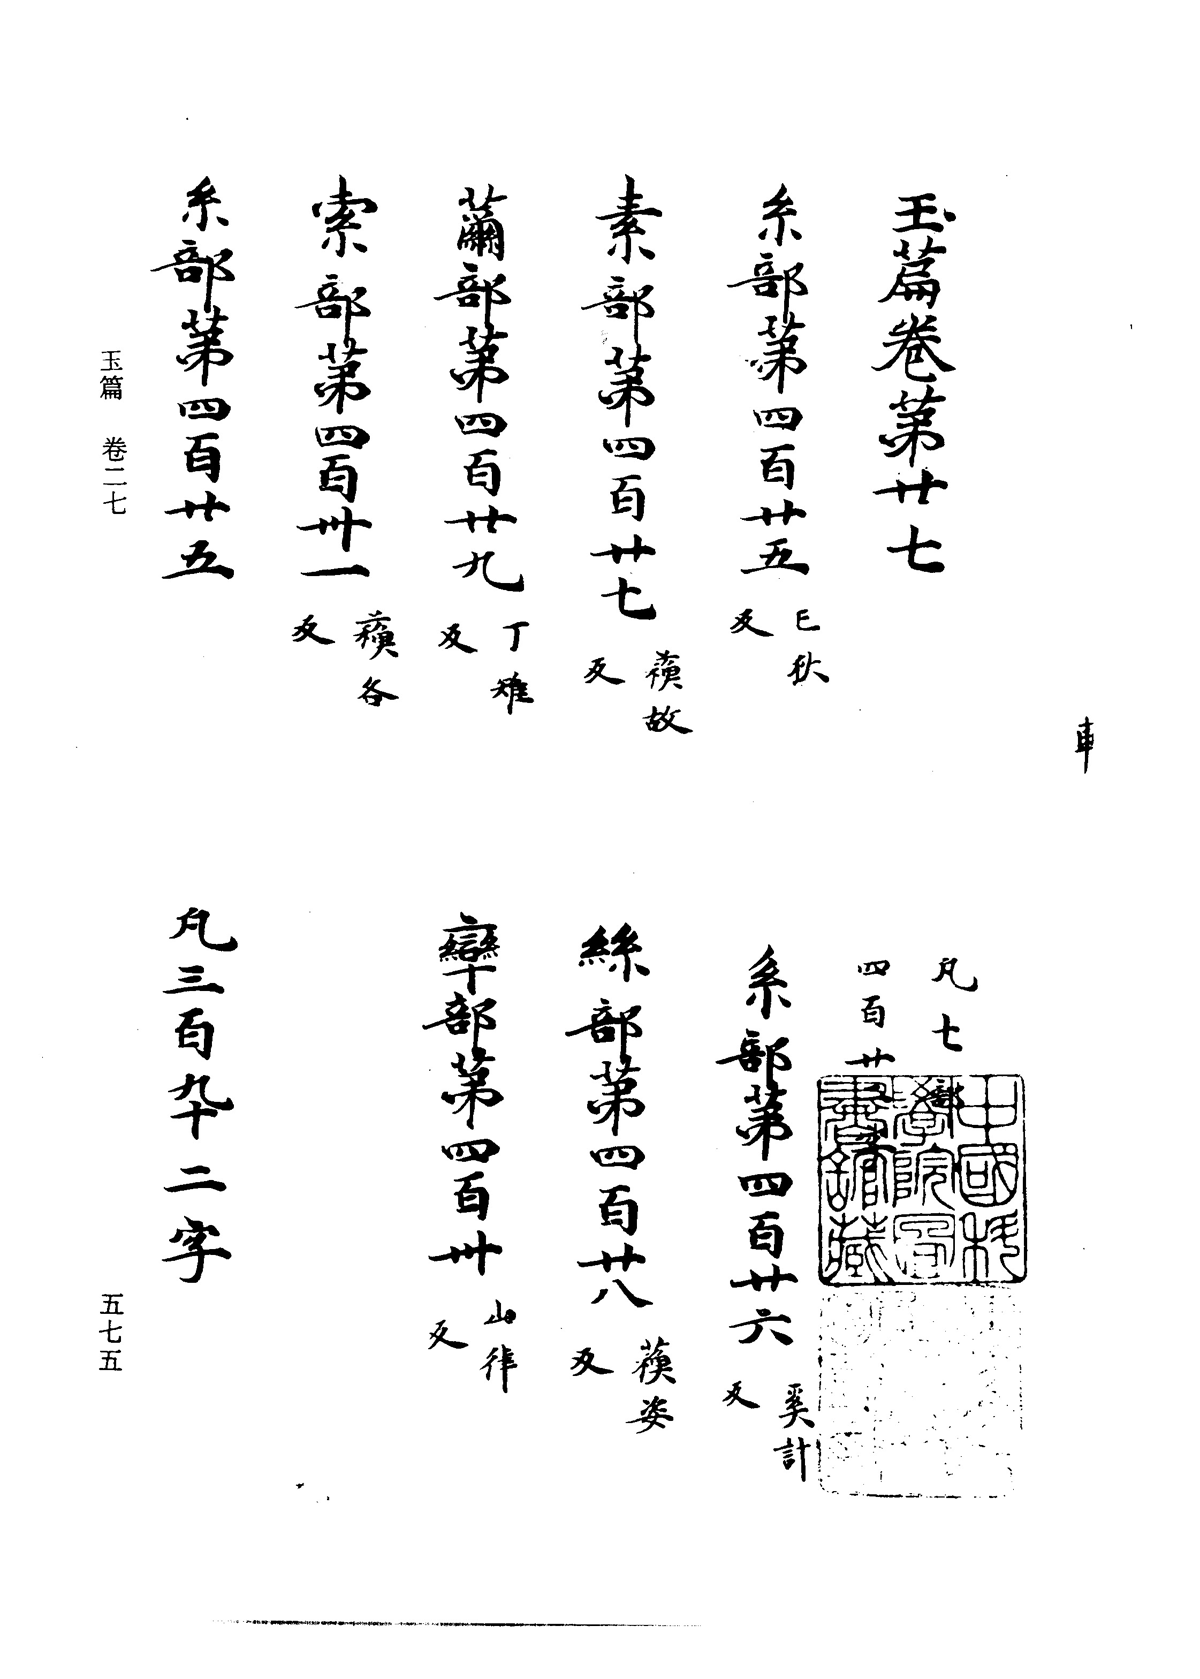 車
玉篇卷第廿七
凡七部
四百廿
糸部第四百廿五 亡狄反
系部第四百廿六 奚計反
素部第四百廿七 蘓故反
絲部第四百廿八 蘓姿反
黹部第四百廿九 丁雉反
率部第四百卅 山律反
索部第四百卅一 蘓各反
糸部第四百廿五 凡三百九十二字
玉篇 卷二七
五七五
中國科
學院圖
書館藏